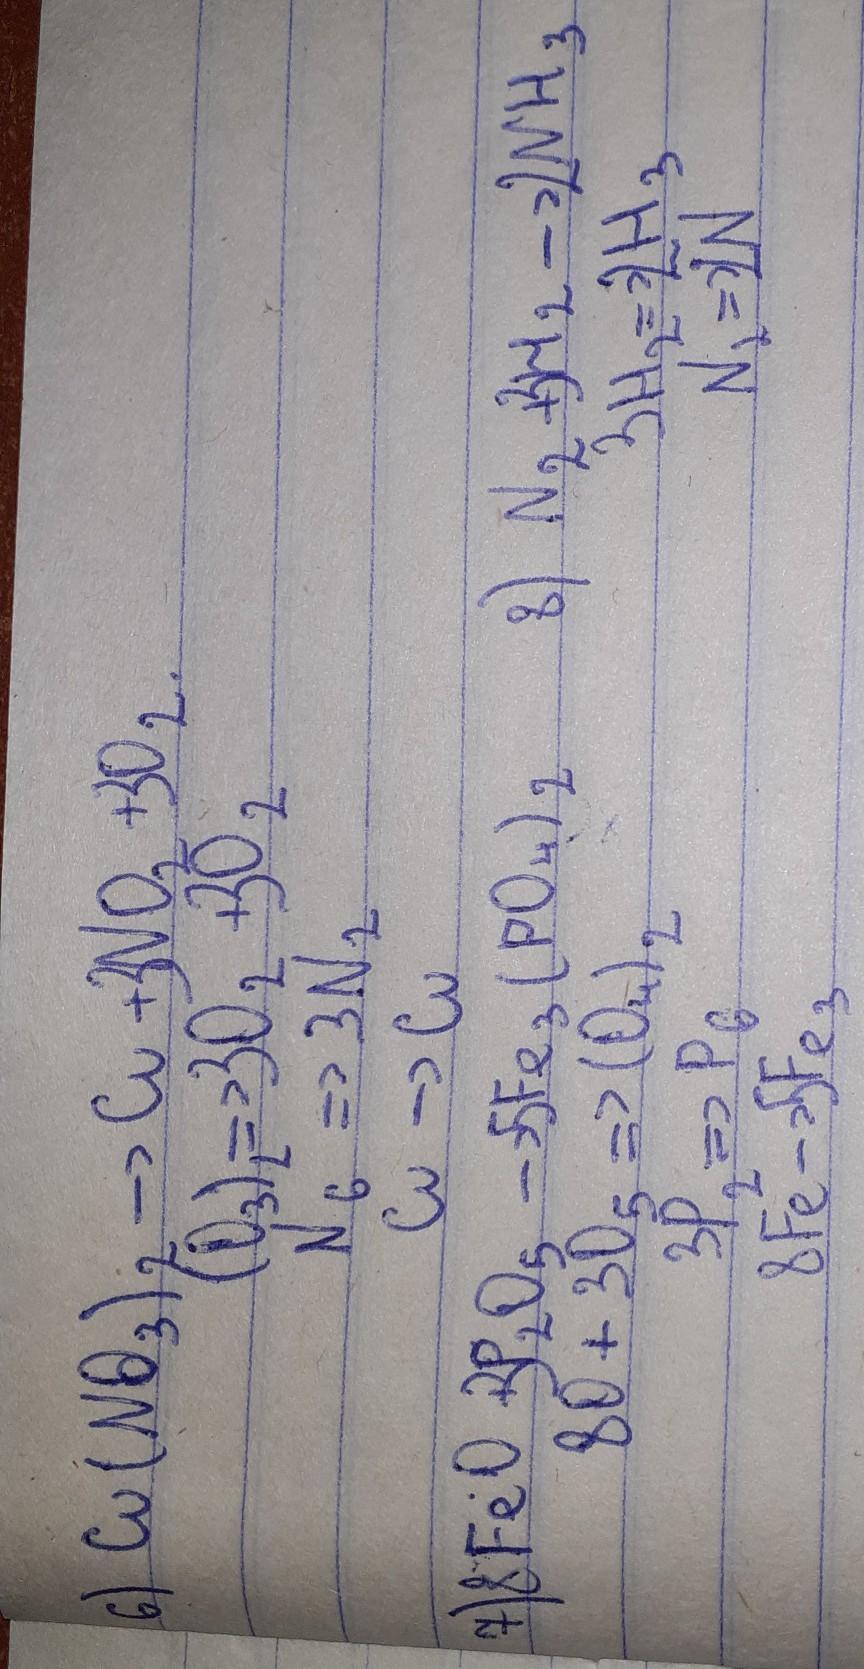 6) Cu(NO3)2 -> Cu +3NO2 +3O2.
(O3)2 => 3O2 +3O2
N6 => 3N2
Cu -> Cu
7) 8FeO +3P2O5 -> 5Fe3(PO4)2
8O + 3O5 => (O4)2
3P2 => P6
8Fe -> 5Fe3
8) N2 +3H2 -> 2NH3
3H2 = 2H3
N2 = 2N